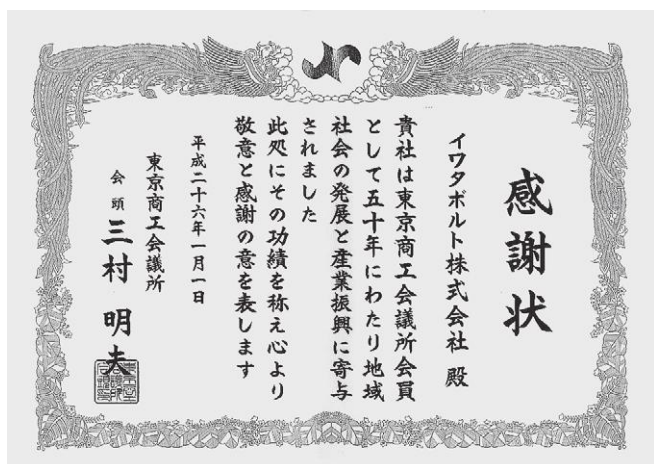 感謝状
イワタボルト株式会社 殿
貴社は東京商工会議所会員
として五十年にわたり地域
社会の発展と産業振興に寄与
されました
此処にその功績を称え心より
敬意と感謝の意を表します
平成二十六年一月一日
東京商工会議所
会頭 三村 明夫